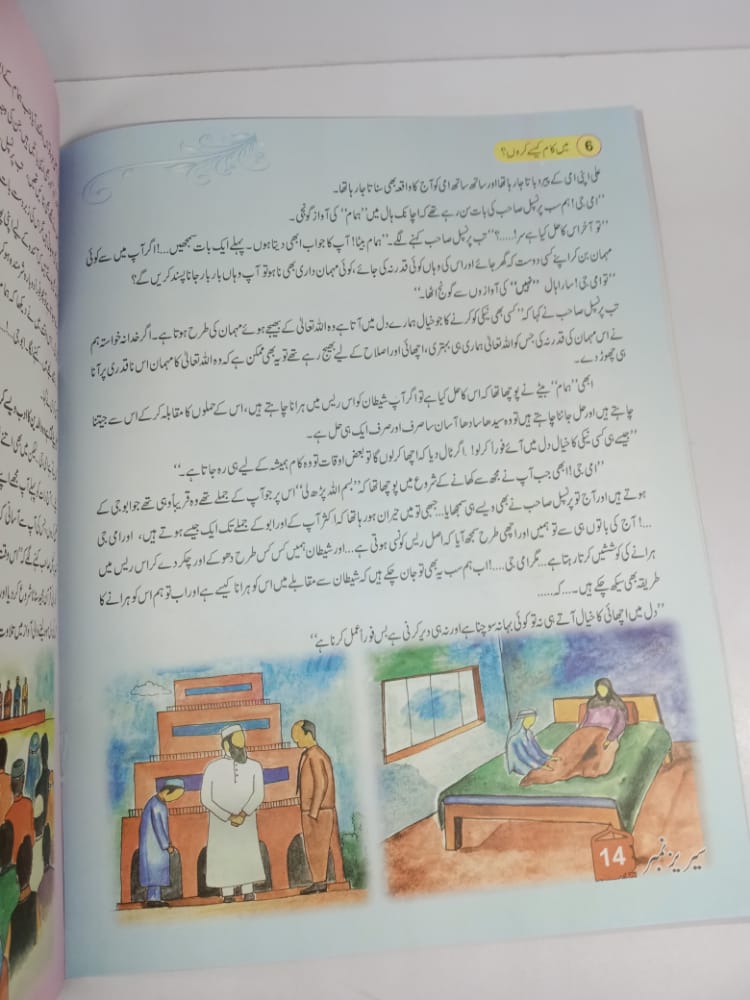 6 میں کام کیسے کروں؟
علی اپنی امی کے پیر دباتا جا رہا تھا اور ساتھ ساتھ امی کو آج کا واقعہ بھی سناتا جا رہا تھا۔
"امی جی! ہم سب پرنسپل صاحب کی بات سن رہے تھے کہ اچانک ہال میں "ہمام" کی آواز گونجی۔
"تو آخر اس کا حل کیا ہے سر!.....؟" تب پرنسپل صاحب کہنے لگے۔ "ہمام بیٹا! آپ کا جواب ابھی دیتا ہوں۔ پہلے ایک بات سمجھیں...! اگر آپ میں سے کوئی
مہمان بن کر اپنے کسی دوست کہ گھر جائے اور اس کی وہاں کوئی قدر نہ کی جائے، کوئی مہمان داری بھی نا ہو تو آپ وہاں بار بار جانا پسند کریں گے؟
"تو امی جی! سارا ہال "نہیں" کی آوازوں سے گونج اٹھا۔"
تب پرنسپل صاحب نے کہا کہ "کسی بھی نیکی کو کرنے کا جو خیال ہمارے دل میں آتا ہے وہ اللہ تعالیٰ کے بھیجے ہوئے مہمان کی طرح ہوتا ہے۔ اگر خدانہ خواستہ ہم
نے اس مہمان کی قدر نہ کی جس کو اللہ تعالیٰ ہماری ہی بہتری، اچھائی اور اصلاح کے لیے بھیج رہے تھے تو یہ بھی ممکن ہے کہ وہ اللہ تعالیٰ کا مہمان اس نا قدری پر آنا
ہی چھوڑ دے۔
ابھی "ہمام" بیٹے نے پوچھا تھا کہ اس کا حل کیا ہے تو اگر آپ شیطان کو اس ریس میں ہرانا چاہتے ہیں، اس کے حملوں کا مقابلہ کر کے اس سے جیتنا
چاہتے ہیں اور حل جاننا چاہتے ہیں تو وہ سیدھا سادھا آسان سا صرف اور صرف ایک ہی حل ہے۔
"جیسے ہی کسی نیکی کا خیال دل میں آئے فورا کر لو! اگر ٹال دیا کہ اچھا کر لوں گا تو بعض اوقات تو وہ کام ہمیشہ کے لیے ہی رہ جاتا ہے۔"
"امی جی! ابھی جب آپ نے مجھ سے کھانے کے شروع میں پوچھا تھا کہ "بسم اللہ پڑھ لی" اس پر جو آپ کے جملے تھے وہ قریباً وہی تھے جو ابو جی کے
ہوتے ہیں اور آج تو پرنسپل صاحب نے بھی ویسے ہی سمجھایا... جبھی تو میں حیران ہو رہا تھا کہ اکثر آپ کے اور ابو کے جملے تک ایک جیسے ہوتے ہیں، اور امی جی
...! آج کی باتوں ہی سے تو ہمیں اور اچھی طرح سمجھ آیا کہ اصل ریس کونسی ہوتی ہے... اور شیطان ہمیں کس کس طرح دھوکے اور چکر دے کر اس ریس میں
ہرانے کی کوششیں کرتا رہتا ہے... مگر امی جی....! اب ہم سب یہ بھی تو جان چکے ہیں کہ شیطان سے مقابلے میں اس کو ہرانا کیسے ہے اور اب تو ہم اس کو ہرانے کا
طریقہ بھی سیکھ چکے ہیں۔...کہ.....
"دل میں اچھائی کا خیال آتے ہی نہ تو کوئی بہانہ سوچنا ہے اور نہ ہی دیر کرنی ہے بس فوراً عمل کرنا ہے"
سیریز نمبر 14